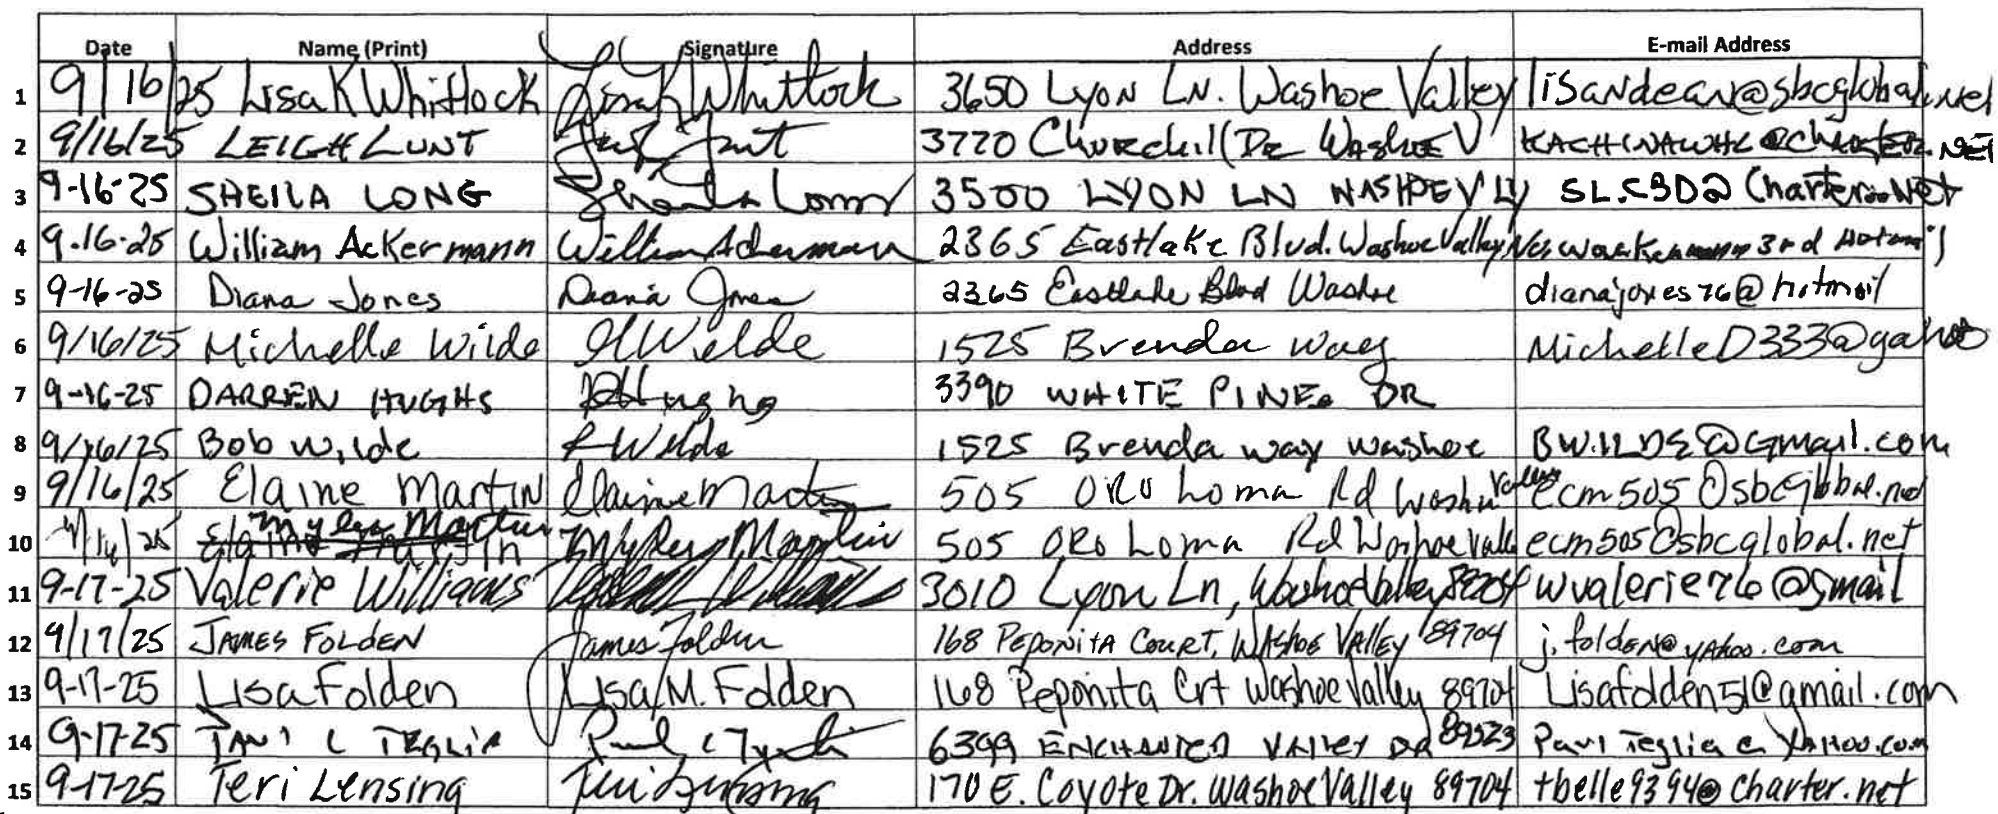 Date Name (Print) Signature Address E-mail Address
1 9/16/25 Lisa K Whitlock Lisa K Whitlock 3650 Lyon Ln. Washoe Valley lisandean@sbcglobal.net
2 9/16/25 LEIGH LUNT 3770 Churchill Dr Washoe V @charter.net
3 9-16-25 SHEILA LONG Sheila Long 3500 LYON LN WASHOE VLY Charter.Net
4 9.16.25 William Ackermann William Ackerman 2365 Eastlake Blvd. Washoe Valley 3rd
5 9-16-25 Diana Jones Diana Jones 2365 Eastlake Blvd Washoe dianajones76@hotmail
6 9/16/25 Michelle Wilde Wilde 1525 Brenda Way MichelleD333@yahoo
7 9-16-25 DARREN HUGHS 3390 WHITE PINE DR
8 9/16/25 Bob Wilde R Wilde 1525 Brenda way washoe BWILDE@Gmail.com
9 9/16/25 Elaine Martin Elaine Martin 505 ORO Loma Rd Washoe Valley ecm505@sbcglobal.net
10 9/16/25 Myles Martin Myles Martin 505 ORO Loma Rd Washoe Valle ecm505@sbcglobal.net
11 9-17-25 Valerie Williams Williams 3010 Lyon Ln, Washoe Valley 89704 wvalerie76@gmail
12 9/17/25 JAMES FOLDEN James Folden 168 PEPONITA COURT, WASHOE VALLEY 89704 j.folden@yahoo.com
13 9-17-25 Lisa Folden Lisa M. Folden 168 Peponita Crt Washoe Valley 89704 Lisafolden51@gmail.com
14 9-17-25 PAUL C TEGLIA 6399 ENCHANTED VALLEY DR 89523 Paul Teglia @ YAHOO.com
15 9-17-25 Teri Lensing Teri Lensing 170 E. Coyote Dr. Washoe Valley 89704 tbelle9394@charter.net